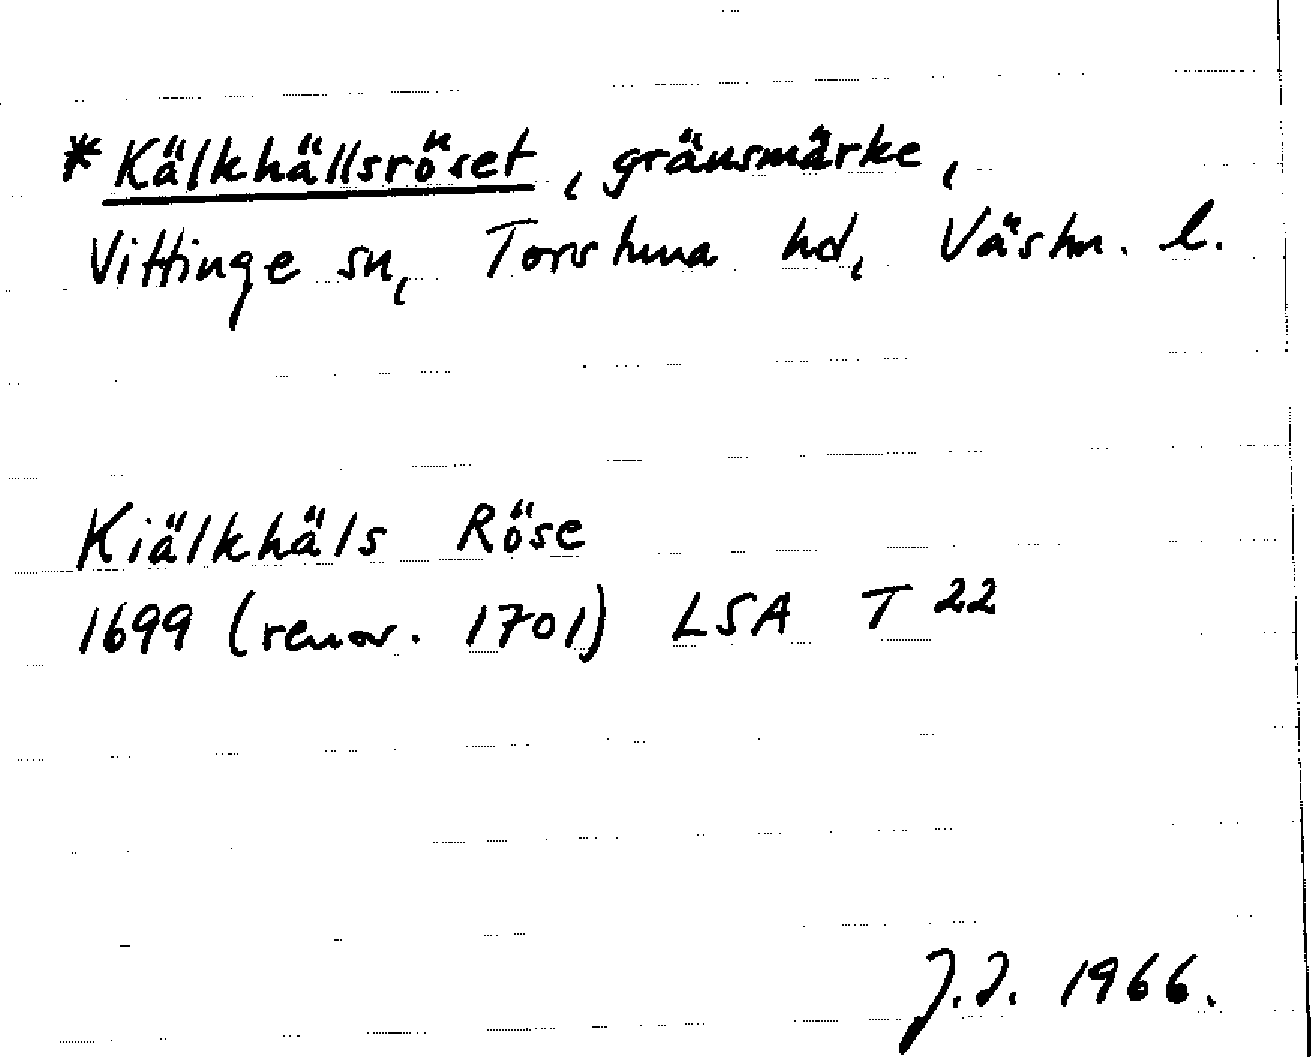 *Kälkhällsröset, gränsmärke,
Vittinge sn, Torstuna hd, Västm. l.
Kiälkhäls Röse
1699 (renov. 1701) LSA T 22
J.J. 1966.